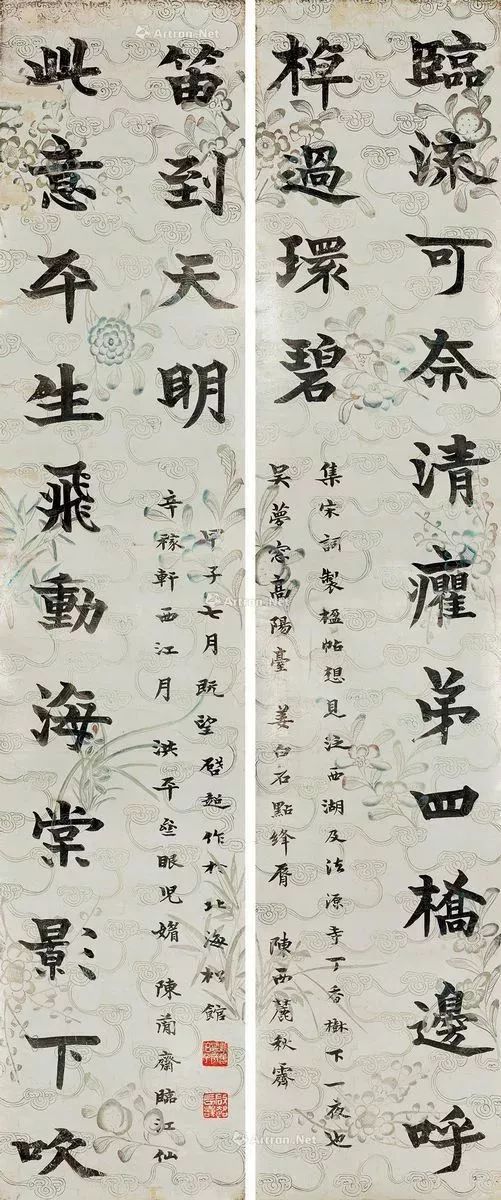 臨流可奈清癯弟四橋邊呼
棹過環碧
集宋詞製楹帖想見泛西湖及法源寺丁香樹下一夜也
吳夢窗高陽臺 姜白石點絳脣 陳西麓秋霽
此意平生飛動海棠影下吹
笛到天明
辛稼軒西江月 洪平 眼兒媚 陳簡齋臨江仙
甲子七月既望啓超作於北海松館
Artron.Net